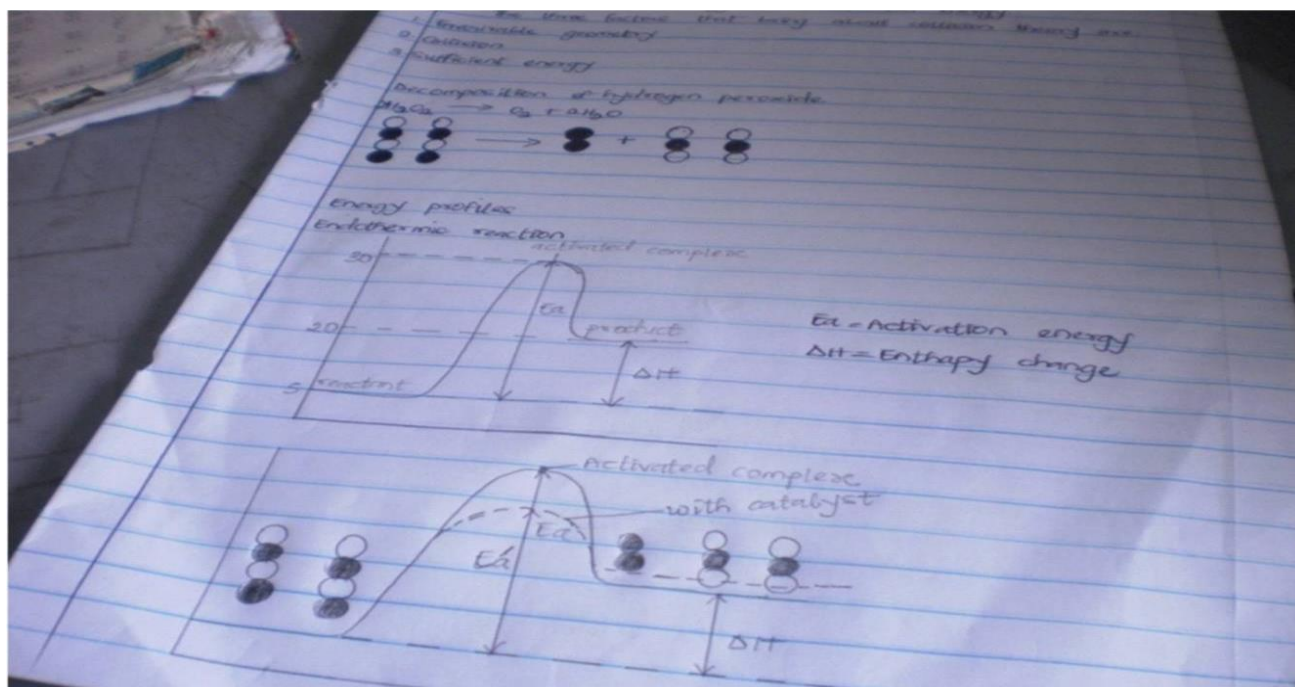 the three factors that bring about collision theory are
1. Favourable geometry
2. Collision
3. Sufficient energy
Decomposition of hydrogen peroxide
2H2O2 → O2 + 2H2O
→ +
Energy profiles
Endothermic reaction
activated complexe
30
Ea
20
product
Ea = Activation energy
ΔH = Enthapy change
ΔH
5
reactant
Activated complexe
with catalyst
Ea
Ea
ΔH